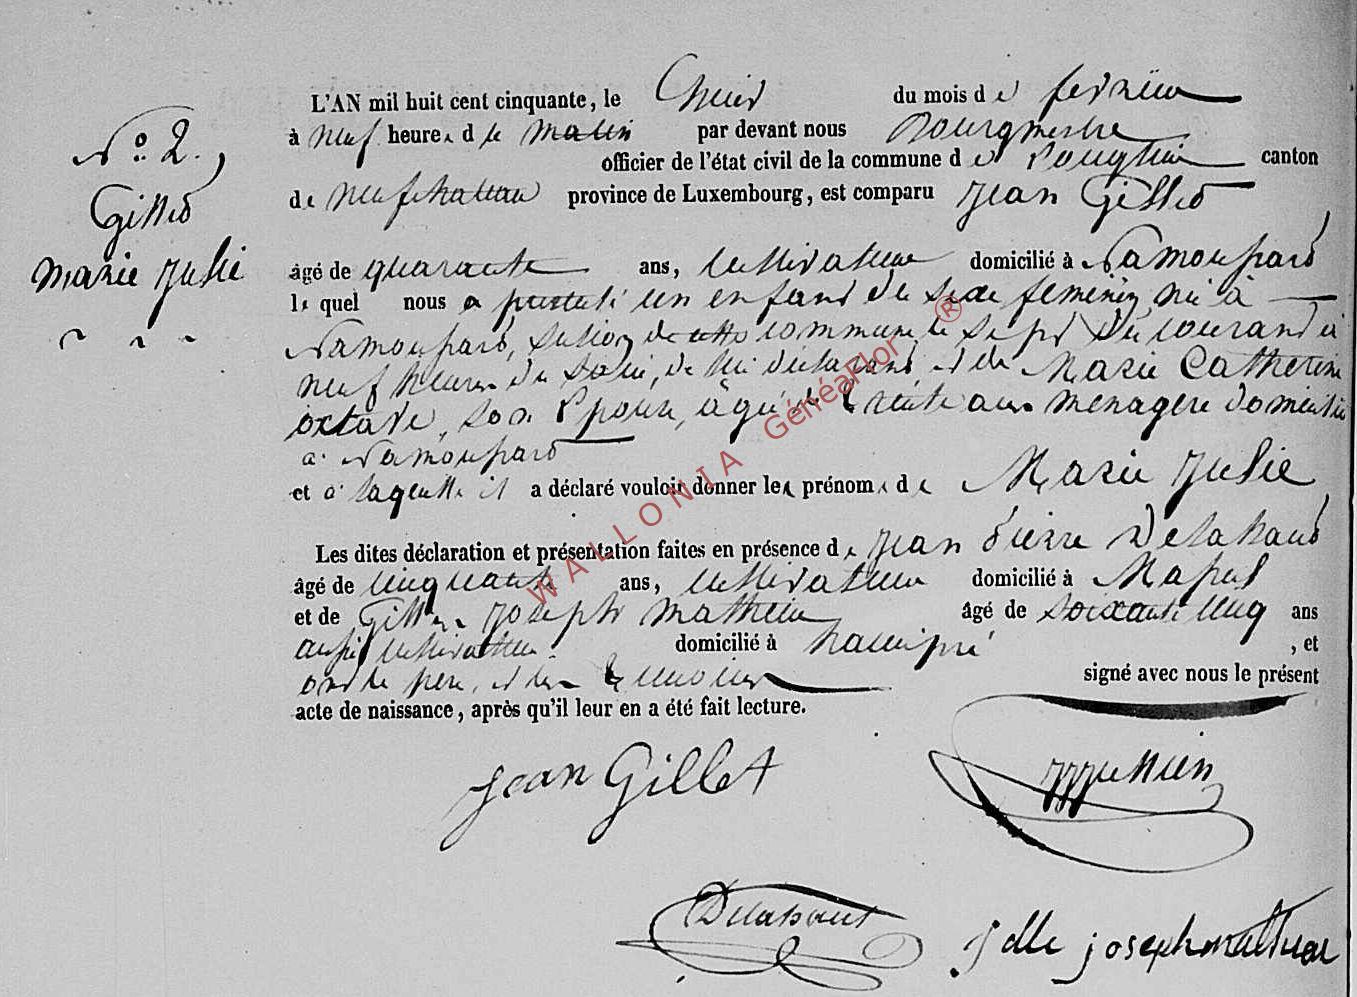 No. 2.,
Gillet
Marie Julie
L'AN mil huit cent cinquante, le huit du mois de fevrier
à neuf heures de matin par devant nous Bourgmestre
officier de l'état civil de la commune de Longlier canton
de neufchateau province de Luxembourg, est comparu Jean Gillet
âgé de quarante ans, cultivateur domicilié à Namoupard,
lequel nous a presenté un enfant du sexe feminin né à
Namoupard, section de cette commune le sept du courant à
neuf heures du soir, de lui declarant, et de Marie Catherine
octave, son Epouse, âgée de trente ans menagere domiciliée
à Namoupard
et à laquelle il a déclaré vouloir donner les prénoms de Marie Julie,
Les dites déclaration et présentation faites en présence de Jean Pierre Delahaut
âgé de cinquante ans, cultivateur domicilié à
et de Gilles Joseph Mathieu âgé de soixante cinq ans
aussi cultivateur domicilié à hamipré , et
ont le pere, et les temoins signé avec nous le présent
acte de naissance, après qu'il leur en a été fait lecture.
Jean Gillet
Delahaut
joseph mathieu
WALLONIA GénéaFlor ®